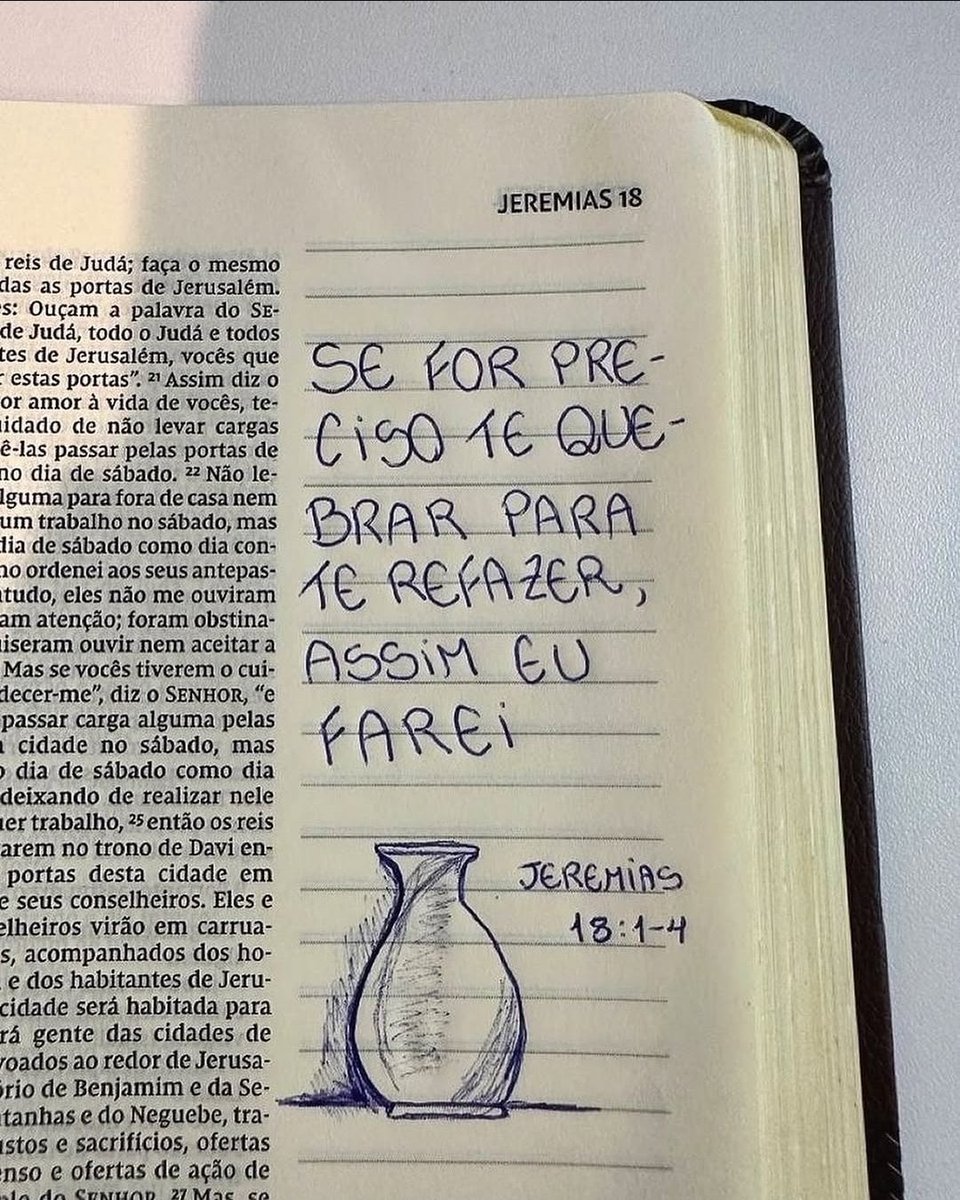 JEREMIAS 18
reis de Judá; faça o mesmo
das as portas de Jerusalém.
s: Ouçam a palavra do SE-
de Judá, todo o Judá e todos
tes de Jerusalém, vocês que
r estas portas”. 21 Assim diz o
or amor à vida de vocês, te-
uidado de não levar cargas
ê-las passar pelas portas de
no dia de sábado. 22 Não le-
lguma para fora de casa nem
um trabalho no sábado, mas
dia de sábado como dia con-
no ordenei aos seus antepas-
ntudo, eles não me ouviram
am atenção; foram obstina-
uiseram ouvir nem aceitar a
Mas se vocês tiverem o cui-
decer-me”, diz o SENHOR, “e
passar carga alguma pelas
cidade no sábado, mas
o dia de sábado como dia
deixando de realizar nele
uer trabalho, 25 então os reis
arem no trono de Davi en-
portas desta cidade em
e seus conselheiros. Eles e
elheiros virão em carrua-
s, acompanhados dos ho-
e dos habitantes de Jeru-
cidade será habitada para
rá gente das cidades de
voados ao redor de Jerusa-
ório de Benjamim e da Se-
ntanhas e do Neguebe, tra-
ustos e sacrifícios, ofertas
enso e ofertas de ação de
do SENHOR. 27 Mas, se
SE FOR PRE-
CISO TE QUE-
BRAR PARA
TE REFAZER,
ASSIM EU
FAREI
JEREMIAS
18:1-4